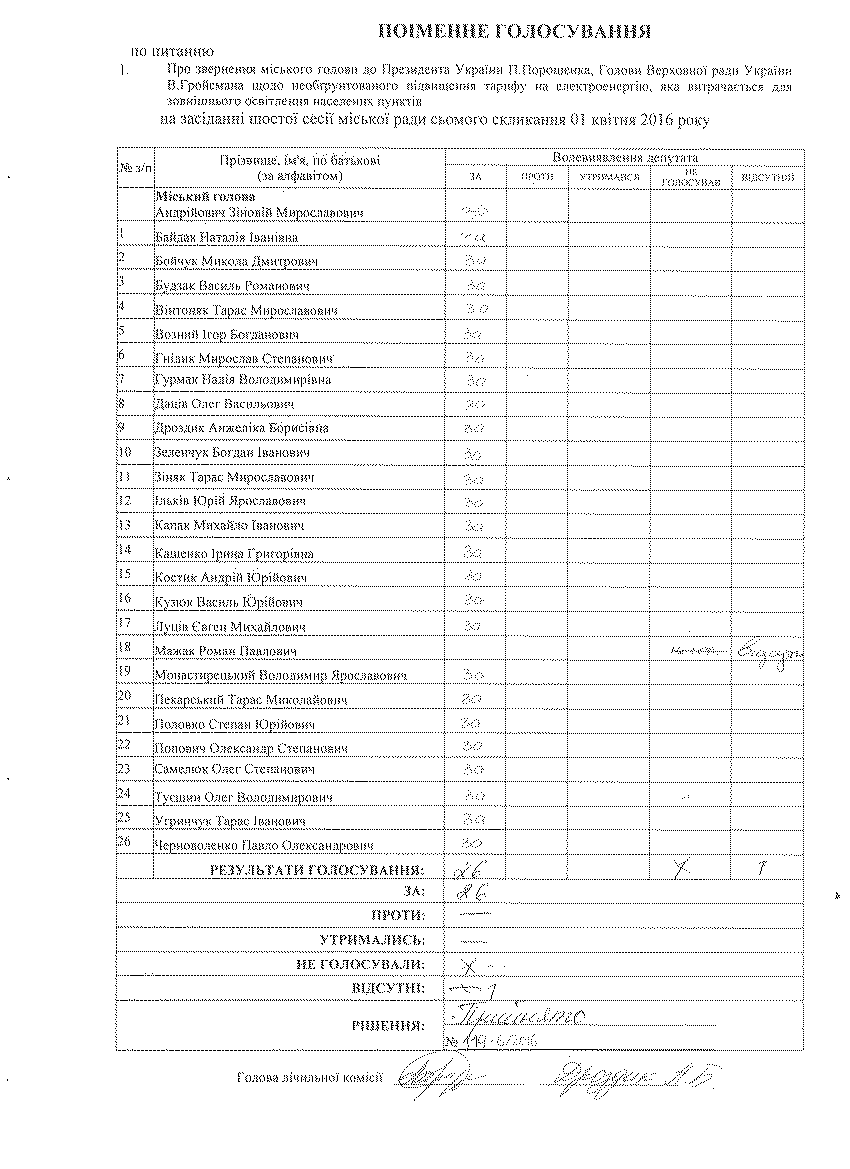 ПОІМЕННЕ ГОЛОСУВАННЯ
по питанню
1. Про звернення міського голови до Президента України П.Порошенка, Голови Верховної ради України
В.Гройсмана щодо необґрунтованого підвищення тарифу на електроенергію, яка витрачається для
зовнішнього освітлення населених пунктів
на засіданні шостої сесії міської ради сьомого скликання 01 квітня 2016 року
№ з/п Прізвище, ім'я, по батькові Волевиявлення депутата
(за алфавітом) ЗА ПРОТИ УТРИМАВСЯ НЕ ГОЛОСУВАВ ВІДСУТНІЙ
Міський голова
Андрійович Зіновій Мирославович за
1 Байдак Наталія Іванівна за
2 Бойчук Микола Дмитрович за
3 Будзак Василь Романович за
4 Вінтоняк Тарас Мирославович за
5 Возний Ігор Богданович за
6 Гнідик Мирослав Степанович за
7 Гурмак Надія Володимирівна за
8 Даців Олег Васильович за
9 Дроздик Анжеліка Борисівна за
10 Зеленчук Богдан Іванович за
11 Зіняк Тарас Мирославович за
12 Ільків Юрій Ярославович за
13 Капак Михайло Іванович за
14 Кащенко Ірина Григорівна за
15 Костик Андрій Юрійович за
16 Кузюк Василь Юрійович за
17 Луців Євген Михайлович за
18 Мажак Роман Павлович відсутн
19 Монастирецький Володимир Ярославович за
20 Пекарський Тарас Миколайович за
21 Половко Степан Юрійович за
22 Попович Олександр Степанович за
23 Самелюк Олег Степанович за
24 Тусшин Олег Володимирович за
25 Угринчук Тарас Іванович за
26 Черноволенко Павло Олександрович за
РЕЗУЛЬТАТИ ГОЛОСУВАННЯ: 26 1
ЗА: 26
ПРОТИ: —
УТРИМАЛИСЬ: —
НЕ ГОЛОСУВАЛИ: -
ВІДСУТНІ: 1
РІШЕННЯ: Прийнято
№ -6/2016
Голова лічильної комісії Дроздик А Б